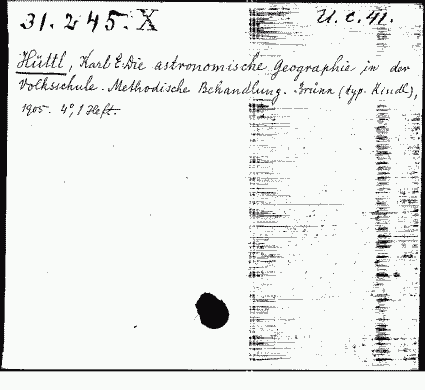 31.245.X U.c.41.
Hüttl, Karl E. Die astronomische Geographie in der
Volksschule. Methodische Behandlung. Brünn (typ. Kindl),
1905. 4°, 1 Heft.